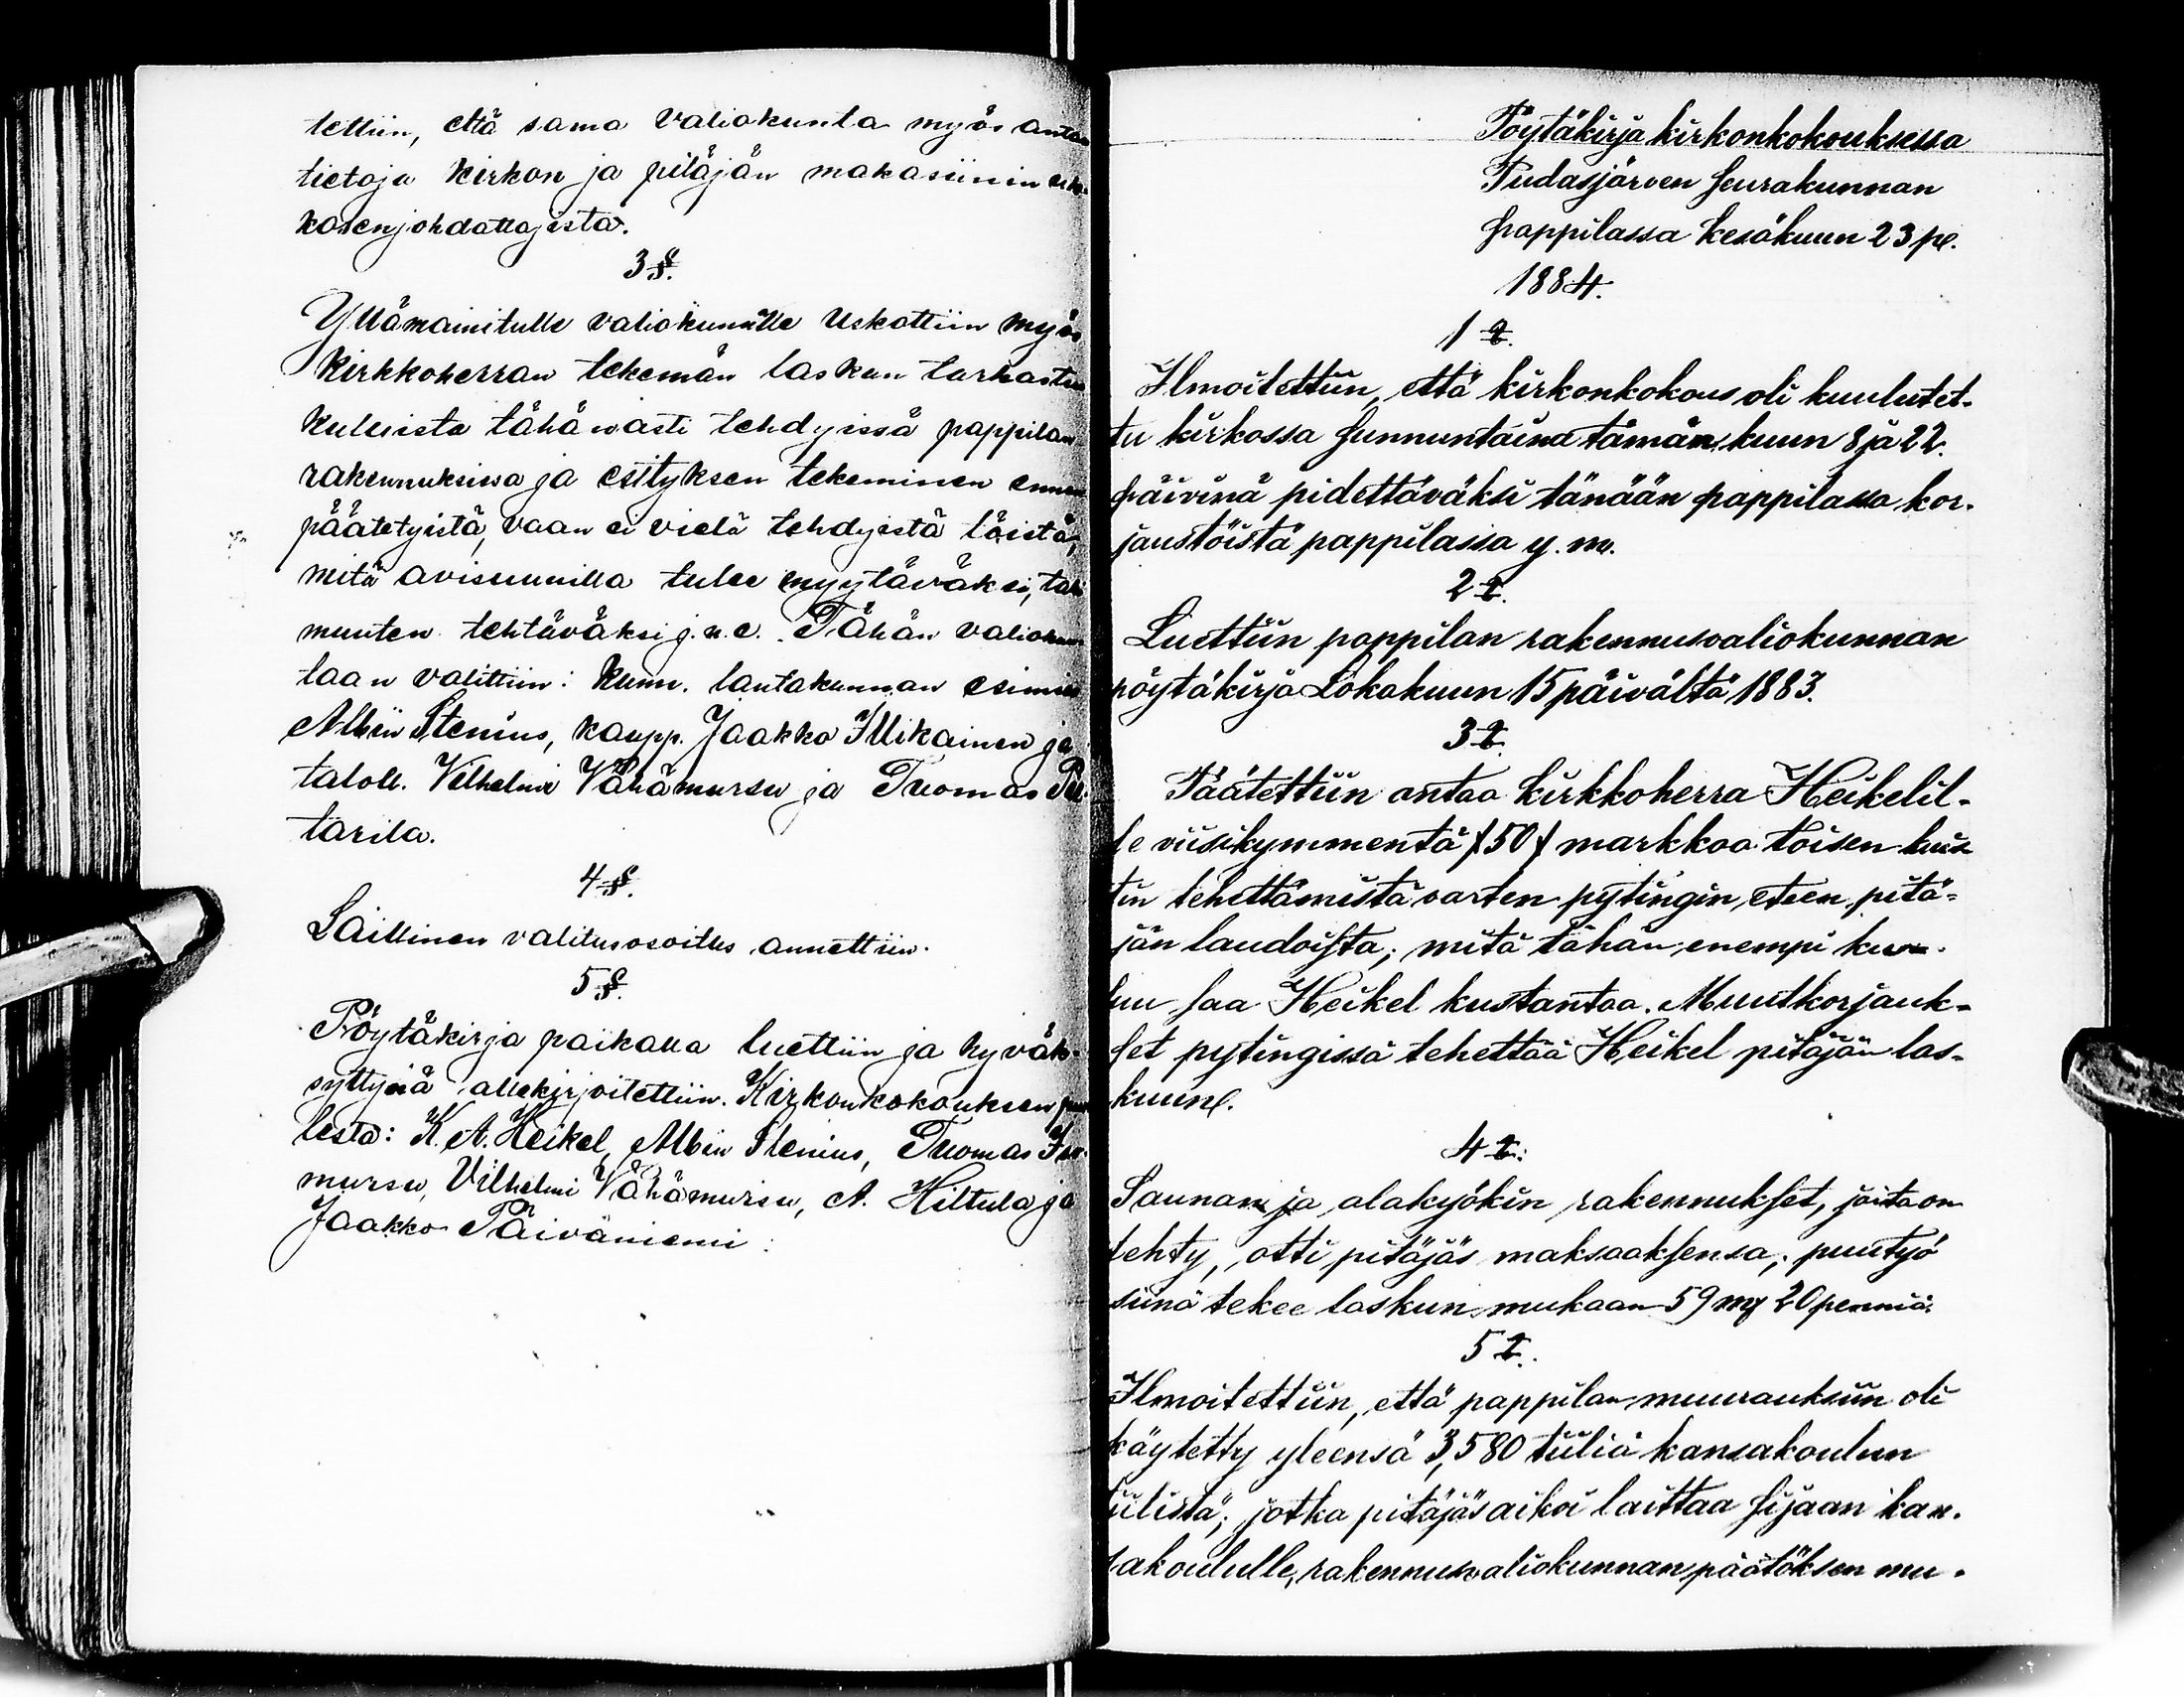 tettiin, että sama valiokunta myös antaa
tietoja kirkon ja pitäjän makasiinin
kasenjohdattajista.
3 §.
Yllämainitulle valiokunnalle uskottiin myös
kirkkoherran tekemän laskun tarkastus
kuluista tähän asti tehdyissä pappilan
rakennuksissa ja esityksen tekeminen ennen
päätetyistä, vaan ei vielä tehdyistä töistä,
mitä avisuunilla tulee myytäväksi, tahi
muuten tehtäväksi j.n.e. Tähän valiokun
taan valittiin: kunn. lautakunnan esimies
Albin Stenius, kaupp. Jaakko Illikainen ja
taloll. Vilhelmi Vähämursu ja Tuomas
tarila.
4 §.
Laillinen valitusosoitus annettiin.
5 §.
Pöytäkirja paikalla luettiin ja hyväk-
syttynä allekirjoitettiin. Kirkonkokouksen puo
lesta: K. A. Heikel, Albin Stenius, Tuomas
mursu, Vilhelmi Vähämursu, A. Hiltula ja
Jaakko Päiväniemi.
Pöytäkirja kirkonkokouksessa
Pudasjärven seurakunnan
pappilassa kesäkuun 23 p.
1884.
1 §.
Ilmoitettiin, että kirkonkokous oli kuulutet-
tu kirkossa sunnuntaina tämän kuun 8 ja 22.
päivinä pidettäväksi tänään pappilassa kor-
jaustöistä pappilassa y. m.
2 §.
Luettiin pappilan rakennusvaliokunnan
pöytäkirja Lokakuun 15 päivältä 1883.
3 §.
Päätettiin antaa kirkkoherra Heikelil-
le viisikymmentä /50/ markkaa toisen
tin tehettämistä varten pytingin eteen pitä-
jän laudoista; mitä tähän enempi kuu-
luu saa Heikel kustantaa. Muut korjauk-
set pytingissä tehettää Heikel pitäjän las-
kuun.
4 §.
Saunan ja alakyökin rakennukset, joita on
tehty, otti pitäjäs maksaaksensa; puutyö
siinä tekee laskun mukaan 59 my 20 penniä.
5 §.
Ilmoitettiin, että pappilan muurauksiin oli
käytetty yleensä 3,580 tiiliä kansakoulun
tiilistä; jotka pitäjäs aikoi laittaa sijaan kan-
sakoululle, rakennusvaliokunnan päätöksen mu-